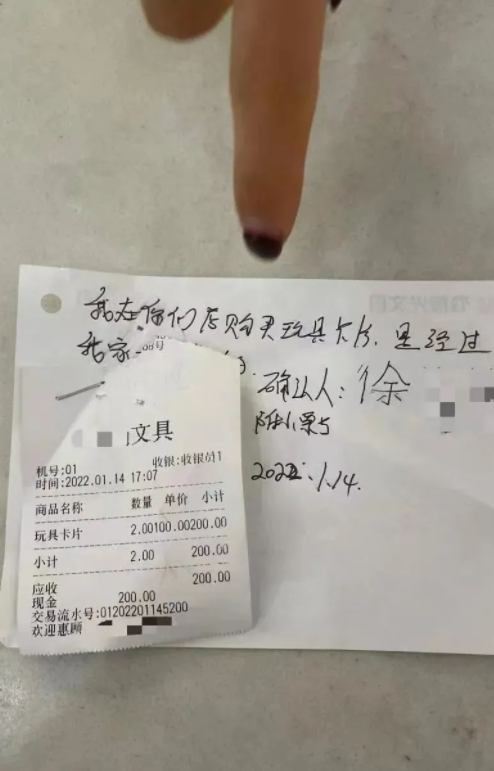 我在你们店购买玩具卡片,是经过
我家
确认人:徐
2022.1.14.
文具
机号:01 收银:收银员1
时间:2022.01.14 17:07
商品名称 数量 单价 小计
玩具卡片 2.00100.00200.00
小计 2.00 200.00
应收 200.00
现金 200.00
交易流水号:01202201145200
欢迎惠顾